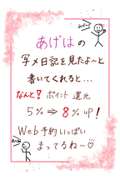 あげはの
写メ日記を見たよ〜と
書いてくれると…
なんと? ポイント還元
5% → 8% up!
Web予約いっぱい
まってるね〜♡